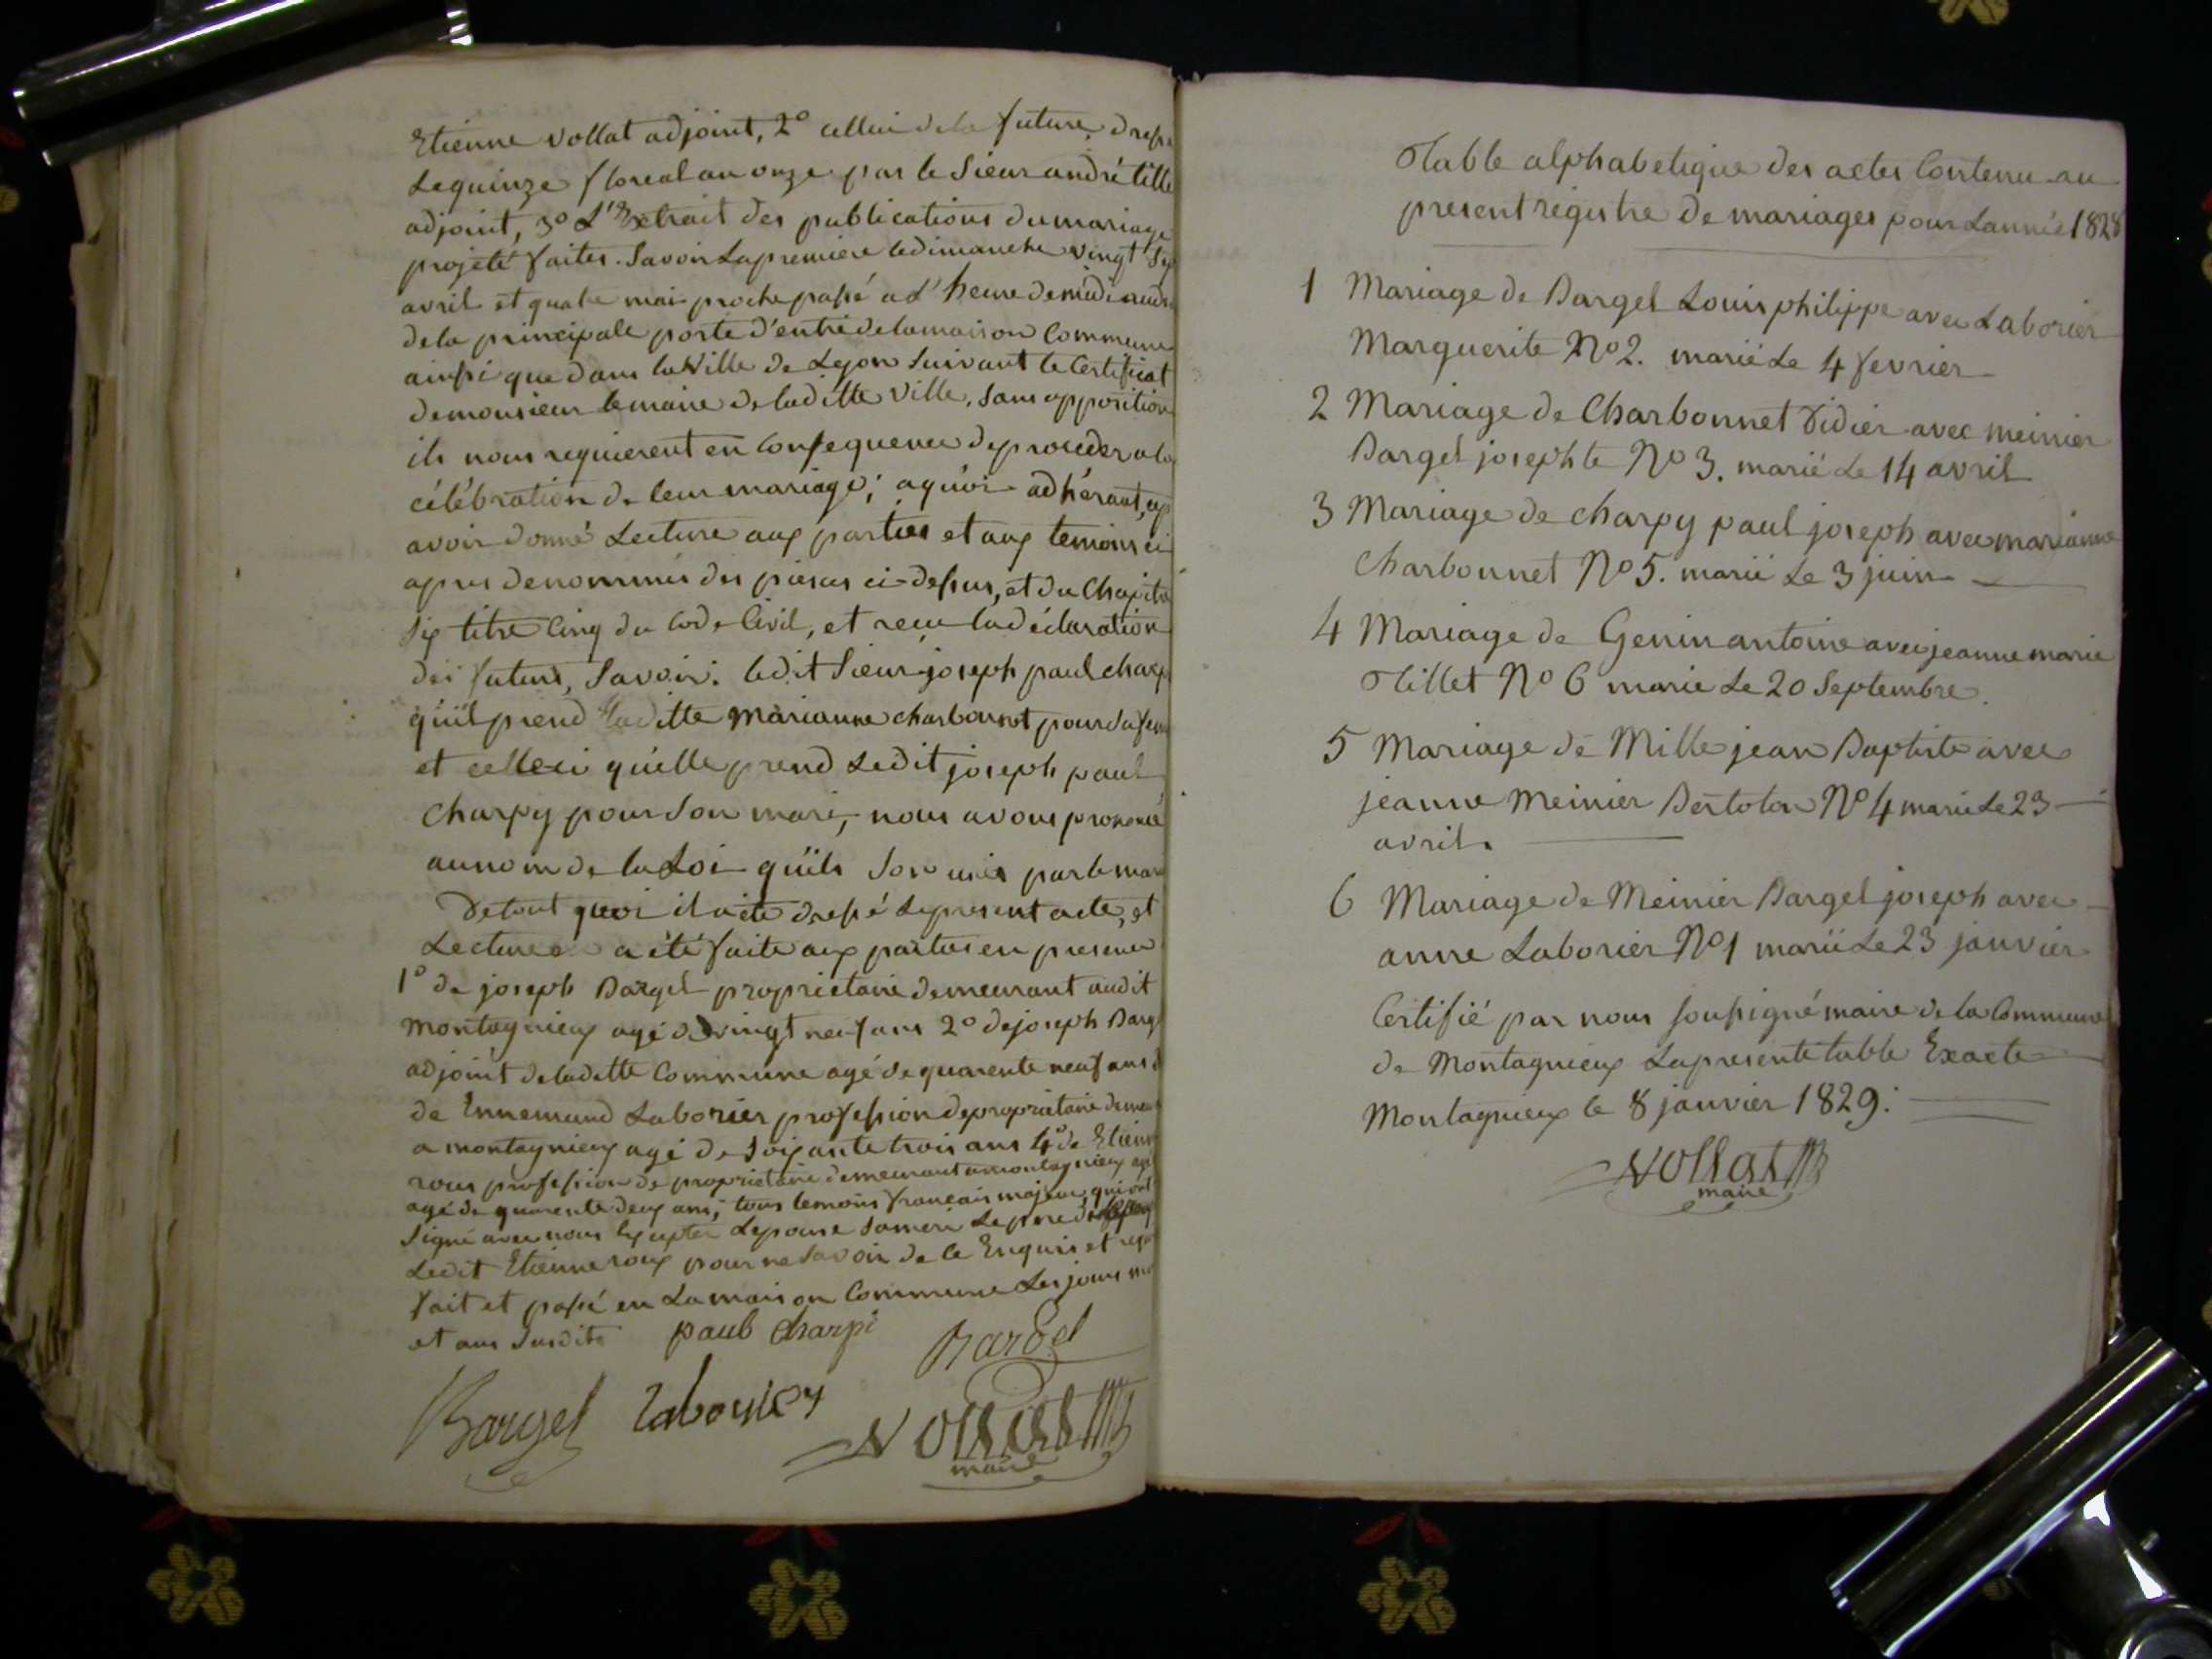 Etienne vollat adjoint, 2º cellui de la future, dressé
Le quinze floreal an onze par le Sieur andré tille
adjoint, 3º L'Extrait des publications du mariage
projeté faites. Savoir La premiere le dimanche vingt Sep
avril et quatre mai proche passé a L'heure de midi
de la principale porte d'entré de la maison Commune
ainssi que dans la Ville de Lyon Suivant le Certificat
de monsieur le maire de laditte Ville, Sans opposition
ils nous requierent en Consequence de proceder a la
célébration de leur mariage; aquoi adhérant, ap
avoir donné Lecture aux parties et aux temoins ci
apres denommés des pieces ci-dessus, et du Chapitre
Six titre Cinq du Code Civil, et recu la déclaration
des futurs, Savoir: ledit Sieur joseph paul charp
qu'il prend laditte marianne charbonnet pour Sa fem
et celleci qu'elle prend Ledit joseph paul
charpy pour Son mari, nous avons prononcé
au nom de la Loi qu'ils Son unis par le mari
De tout quoi il a été dressé Le present acte, et
Lecture a été faite aux parties en presence
1º de joseph Bargel proprietaire demeurant audit
montagnieux agé de vingt neuf ans 2º de joseph Barg
adjoint de laditte Commune agé de quarente neuf ans
de Ennemund Laborier profession de proprietaire deme
a montagnieux agé de Soixante trois ans 4º de Etienn
roux profession de proprietaire demeurant a montagnieux
agé de quarente deux ans; tous temoins francais majeur, qui ont
Signé avec nous Excepter Lepouse Sa mere Le pere de
Ledit Etienne roux pour ne Savoir de ce Enquis et
fait et passé en La maison Commune Les jours
et ans Susdits paul charpi Bargel
Bargel Laborier
vollat
maire
Table alphabetique des actes Contenu au
present registre de mariages pour Lannée 1828
1 Mariage de Bargel Louis philippe avec Laborier
Marguerite Nº 2. marié Le 4 fevrier
2 Mariage de Charbonnet Didier avec meinier
Bargel josephte Nº 3. marié Le 14 avril
3 Mariage de charpy paul joseph avec marianne
Charbonnet Nº 5. marié Le 3 juin
4 Mariage de Genin antoine avec jeanne marie
Tillet Nº 6 marié Le 20 Septembre.
5 Mariage de Mille jean Baptiste avec
jeanne Meinier Bertolon Nº 4 marié Le 23
avril.
6 Mariage de Meinier Bargel joseph avec
anne Laborier Nº 1 marié Le 23 janvier
Certifié par nous Soussigné maire de la Commune
de Montagnieux La presente table Exacte
Montagnieux le 8 janvier 1829.
vollat
maire